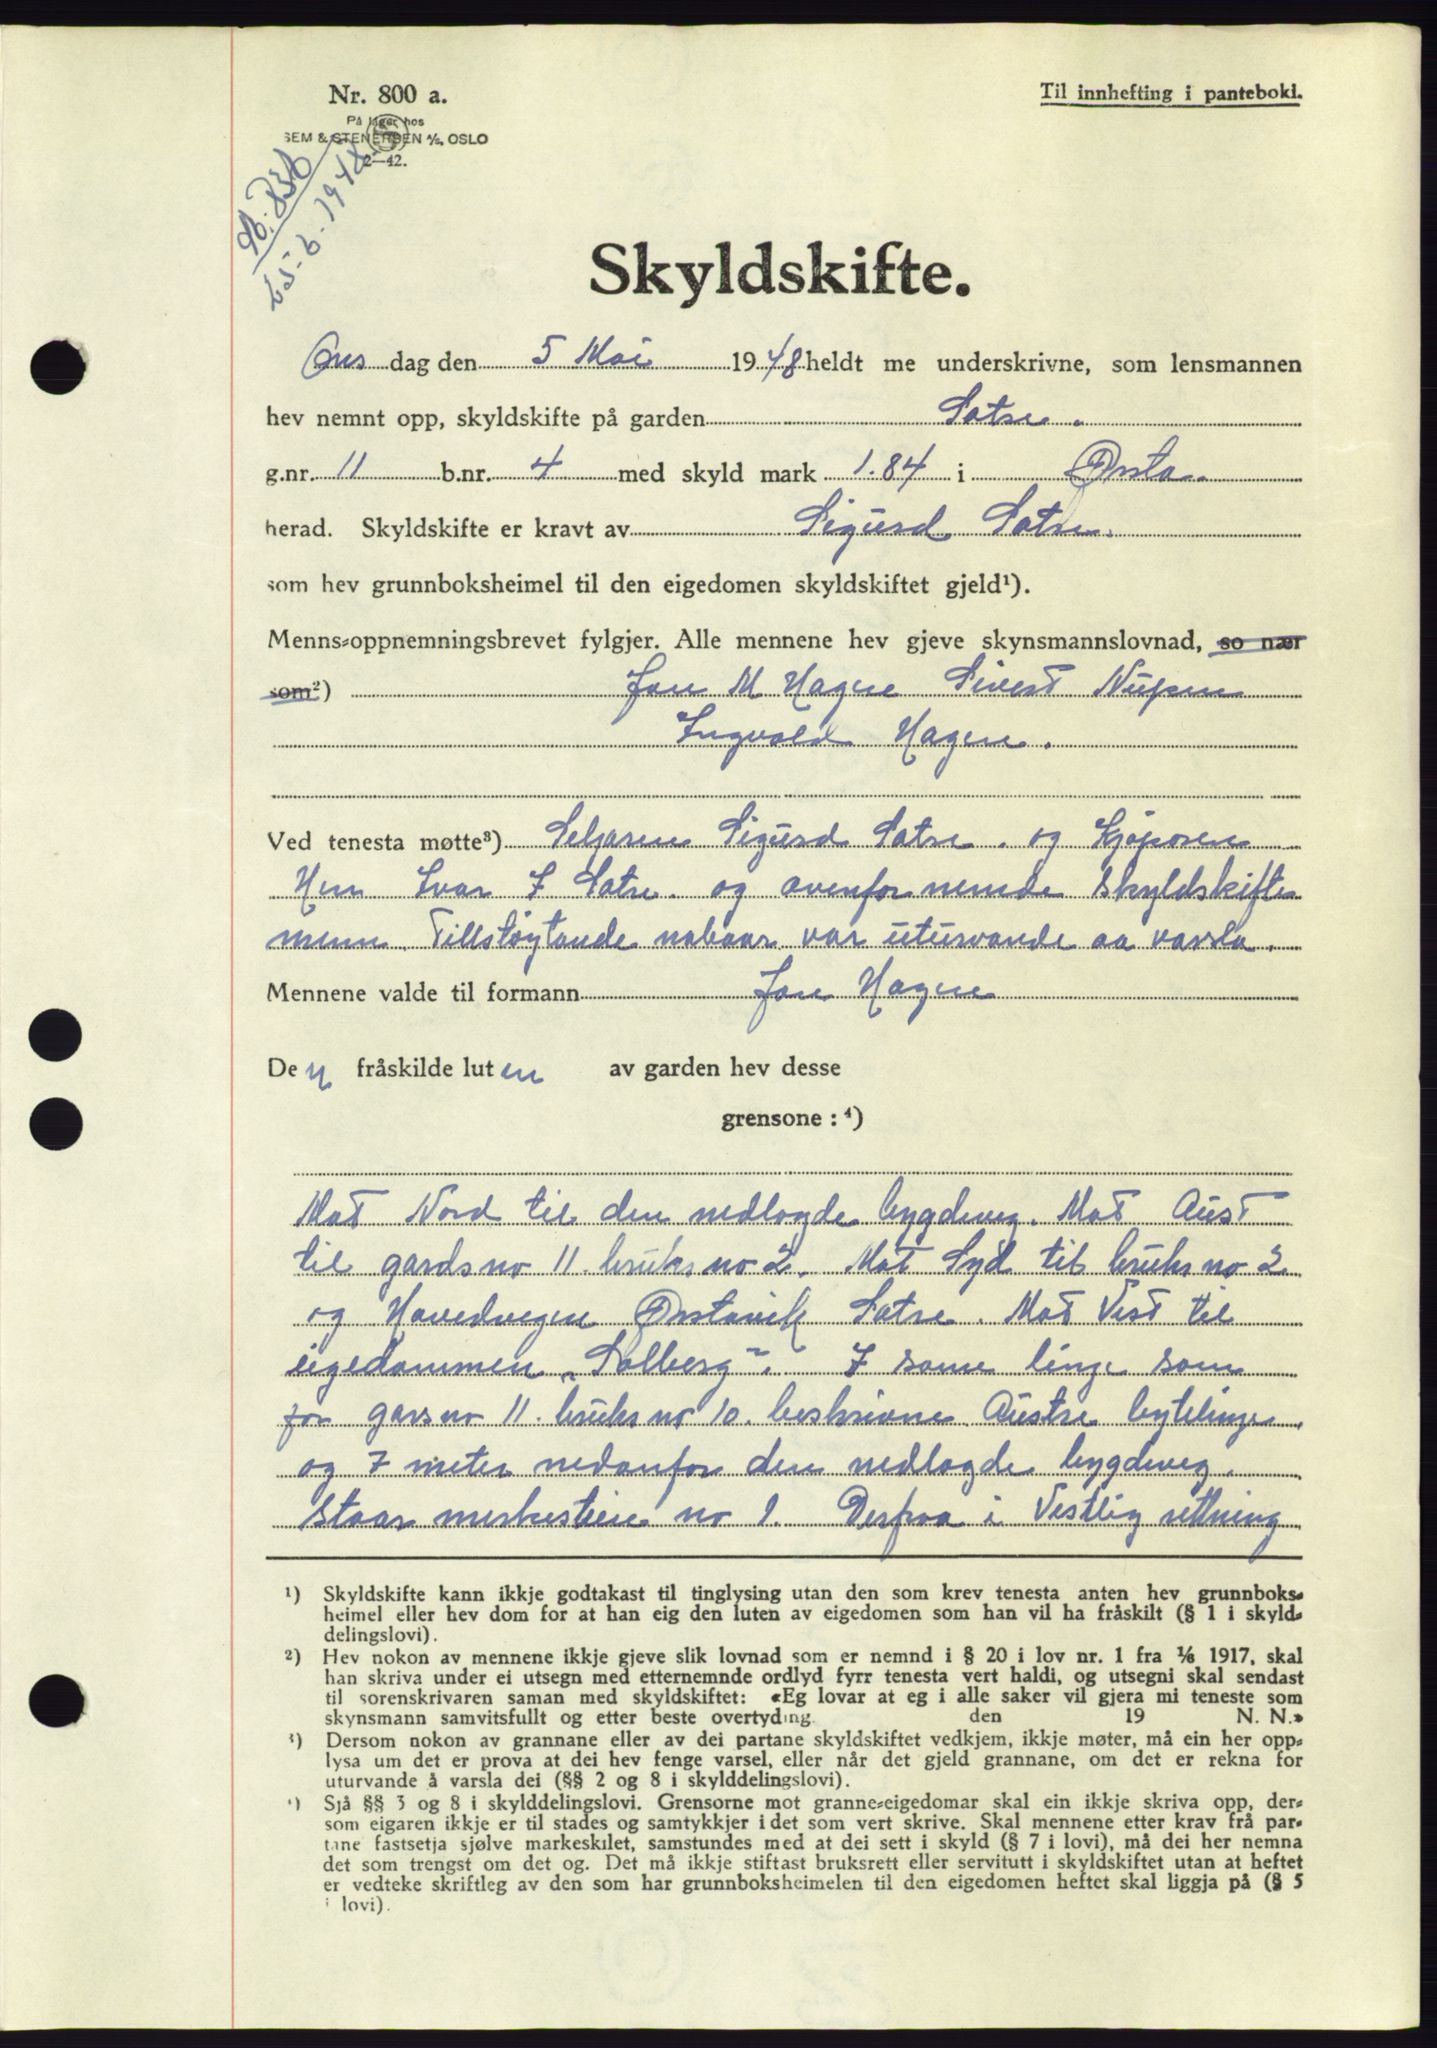 Nr. 800 a.
Til innhefting i panteboki.
På lager hos
SEM & STENERSEN A/S, OSLO
2—42.
25-6-1948
Skyldskifte.
Ons dag den 5 Mai 1948 heldt me underskrivne, som lensmannen
hev nemnt opp, skyldskifte på garden Satre.
g.nr. 11 b.nr. 4 med skyld mark 1.84 i Ørsta
herad. Skyldskifte er kravt av Sigurd Satre.
som hev grunnboksheimel til den eigedomen skyldskiftet gjeld¹).
Menns-oppnemningsbrevet fylgjer. Alle mennene hev gjeve skynsmannslovnad, so nær
som²) Jon M Hagen Sivert Nupen
Ingvald Hagen.
Ved tenesta møtte³) Seljaren Sigurd Satre. og Kjøparen
Ivar I Satre. og ovenfor nemde Skyldskifte
menn. Tillstøytande nabaar var uturvande aa varsla.
Mennene valde til formann Jon Hagen
Den fråskilde luten av garden hev desse
grensone : ⁴)
Mot Nord til den nedlagde bygdeveg. Mot Aust
til gardsno 11. bruks no 2. Mot Syd til bruks no 2
og Hovedvegen Ørstavik Satre. Mot Vest til
eigedommen „Solberg". I same linje som
for garsno 11. bruks no 10. beskrivne Austre bytelinje.
og 7 meter nedanfor den nedlagde bygdeveg.
Staar merkestein no 1. Derfraa i Vestlig rettning
¹) Skyldskifte kann ikkje godtakast til tinglysing utan den som krev tenesta anten hev grunnboks-
heimel eller hev dom for at han eig den luten av eigedomen som han vil ha fråskilt (§ 1 i skyld-
delingslovi).
²) Hev nokon av mennene ikkje gjeve slik lovnad som er nemnd i § 20 i lov nr. 1 fra 1/6 1917, skal
han skriva under ei utsegn med etternemnde ordlyd fyrr tenesta vert haldi, og utsegni skal sendast
til sorenskrivaren saman med skyldskiftet: «Eg lovar at eg i alle saker vil gjera mi teneste som
skynsmann samvitsfullt og etter beste overtyding. den 19 N. N.»
³) Dersom nokon av grannane eller av dei partane skyldskiftet vedkjem, ikkje møter, må ein her opp-
lysa um det er prova at dei hev fenge varsel, eller når det gjeld grannane, om det er rekna for
uturvande å varsla dei (§§ 2 og 8 i skylddelingslovi).
⁴) Sjå §§ 3 og 8 i skylddelingslovi. Grensorne mot granne-eigedomar skal ein ikkje skriva opp, der-
som eigaren ikkje er til stades og samtykkjer i det som vert skrive. Skal mennene etter krav frå par-
tane fastsetja sjølve markeskilet, samstundes med at dei sett i skyld (§ 7 i lovi), må dei her nemna
det som trengst om det og. Det må ikkje stiftast bruksrett eller servitutt i skyldskiftet utan at heftet
er vedteke skriftleg av den som har grunnboksheimelen til den eigedomen heftet skal liggja på (§ 5
i lovi).